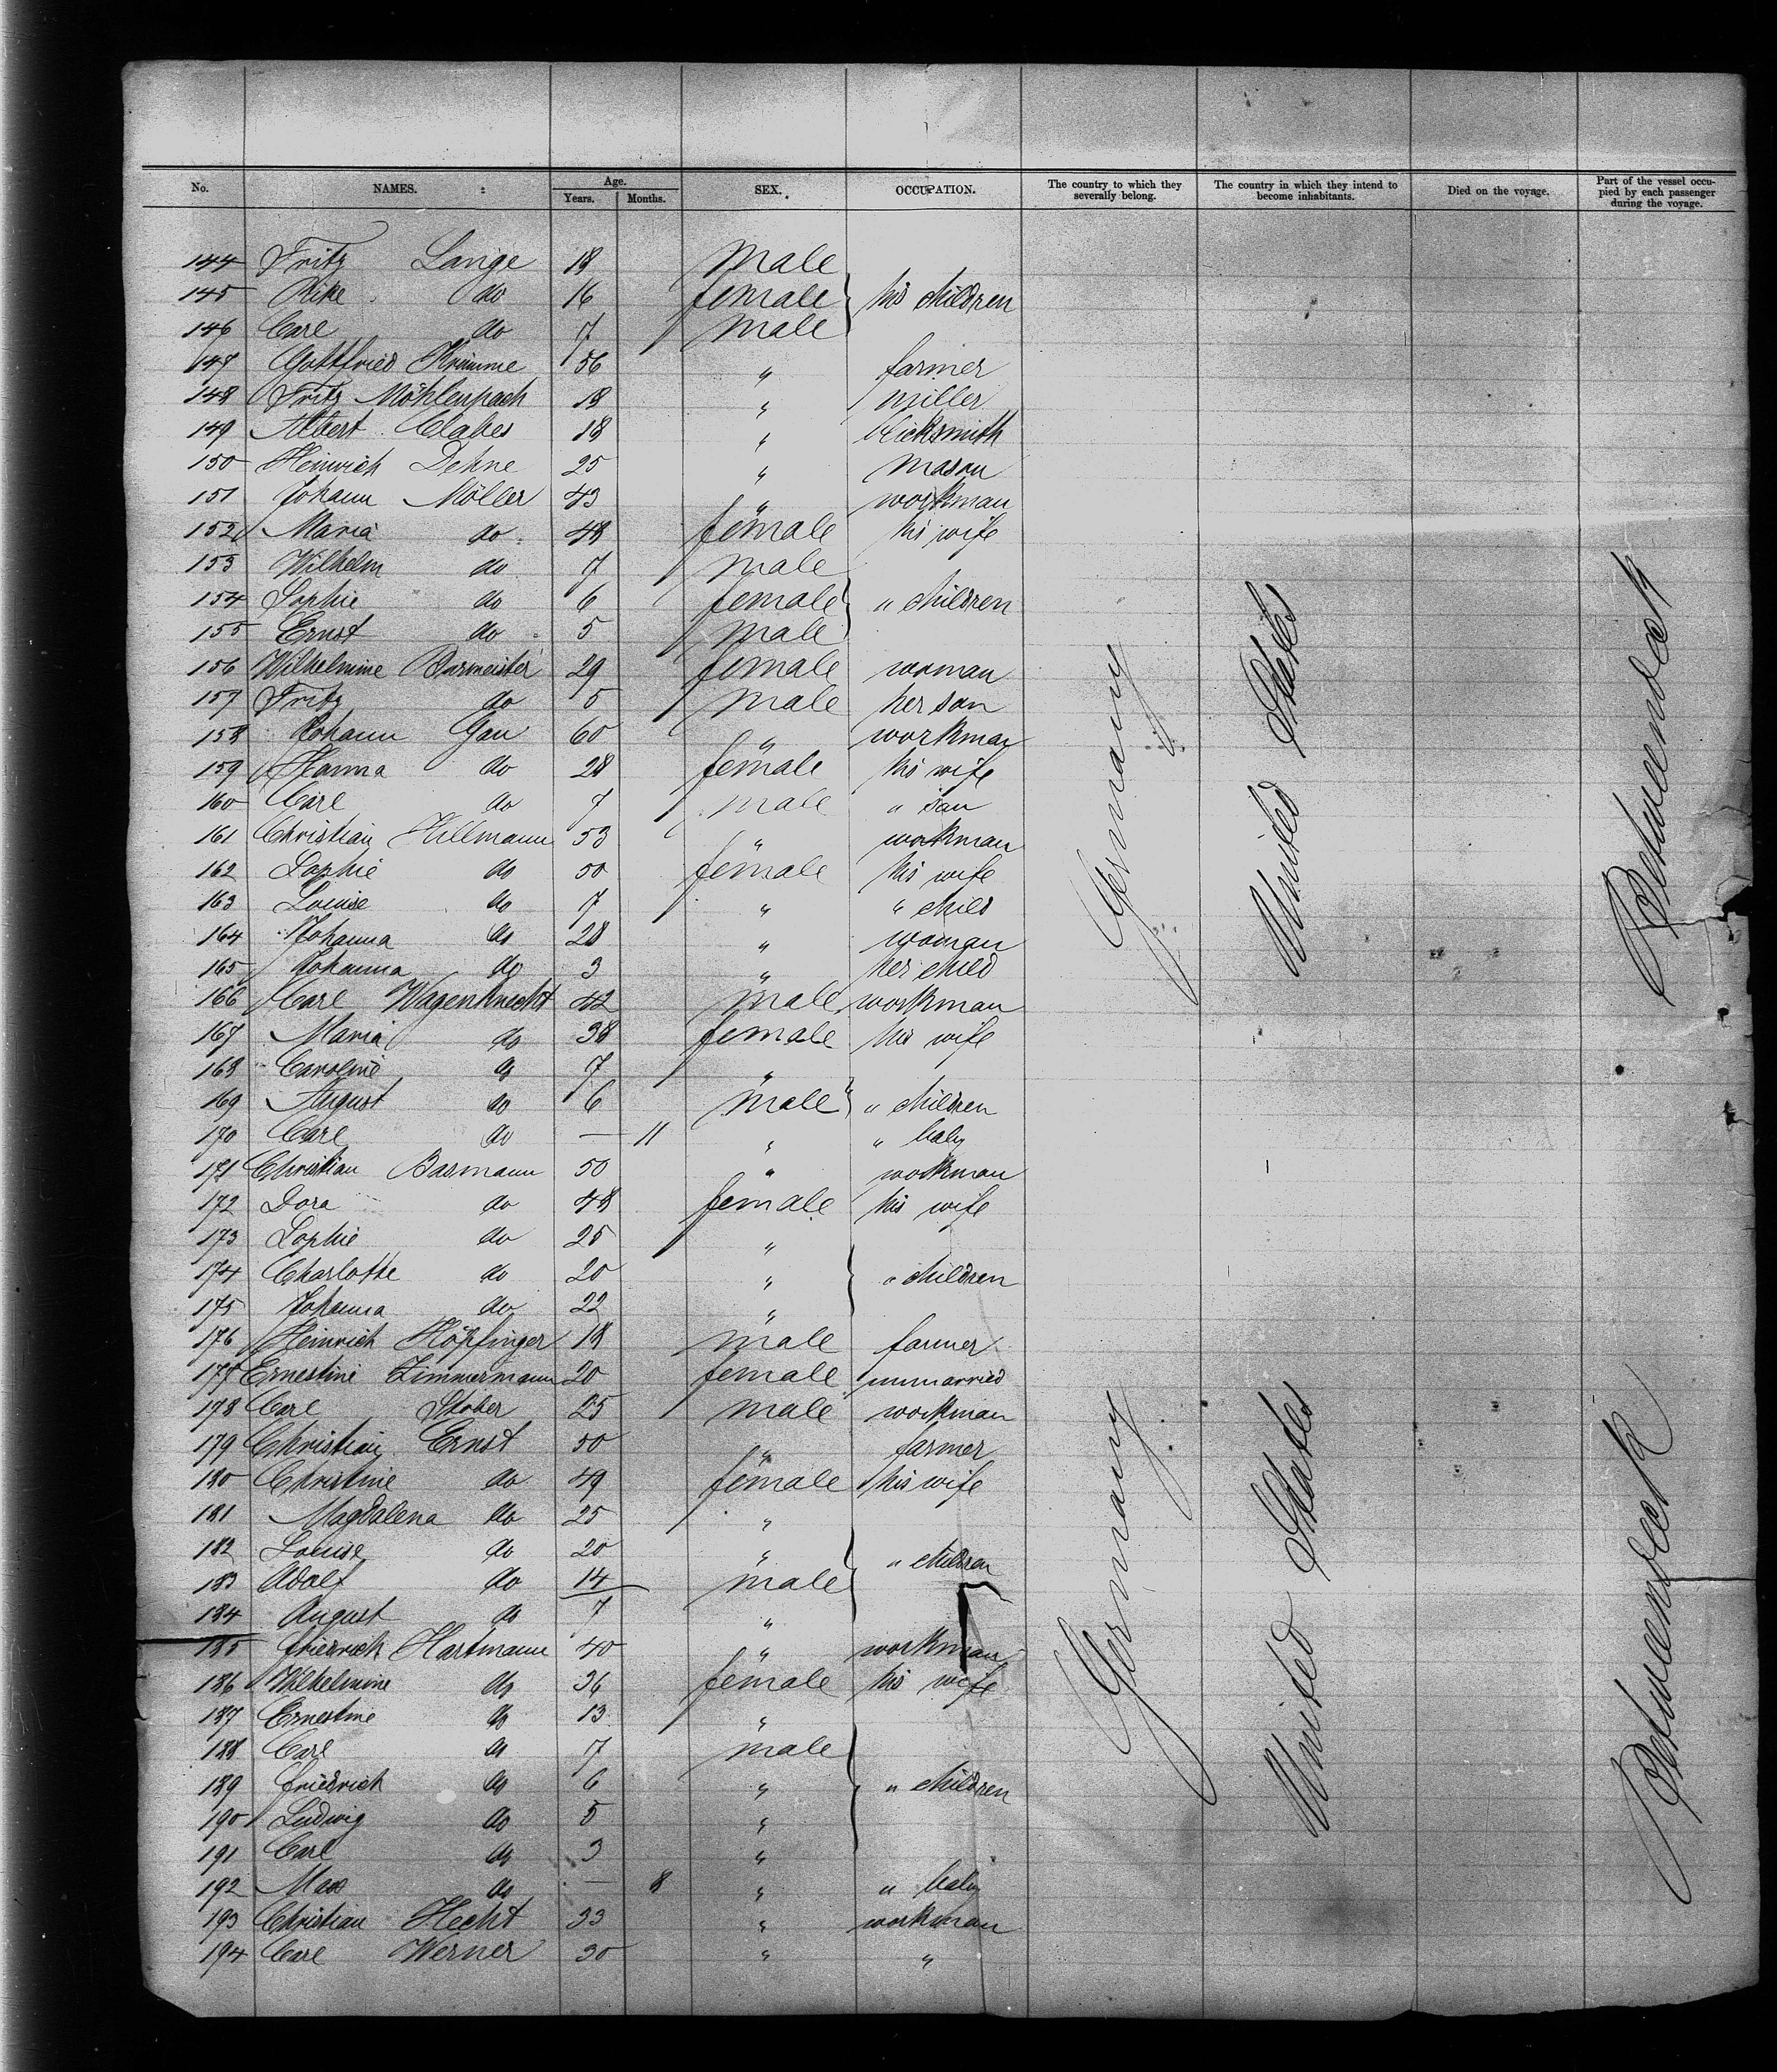 No. NAMES. Age. Years. Months. SEX. OCCUPATION. The country to which they severally belong. The country in which they intend to become inhabitants. Died on the voyage. Part of the vessel occupied by each passenger during the voyage.
144 Fritz Lange 18 male
145 Rike do 16 female his children
146 Carl do 7 male
147 Gottfried Krümme 56 " farmer
148 Fritz Möhlenpach 18 " miller
149 Albert Clabes 18 " smith
150 Heinrich Dehne 25 " mason
151 Johann Möller 43 " workman
152 Maria do 48 female his wife
153 Wilhelm do 7 male
154 Sophie do 6 female " children
155 Ernst do 5 male
156 Wilhelmine Burmeister 29 female woman
157 Fritz do 5 male her son
158 Johann Gau 60 " workman
159 Hanna do 28 female his wife
160 Carl do 7 male " son
161 Christian Hillmann 53 " workman
162 Sophie do 50 female his wife
163 Louise do 7 " " child
164 Johanna do 28 " woman
165 Johanna do 3 " her child
166 Carl Wagenknecht 42 male workman
167 Maria do 38 female his wife
168 Caroline do 7 "
169 August do 6 male " children
170 Carl do — 11 " " baby
171 Christian Basmann 50 " workman
172 Dora do 48 female his wife
173 Sophie do 25 "
174 Charlotte do 20 " " children
175 Johanna do 22 "
176 Heinrich Höpfinger 18 male farmer
177 Ernestine Zimmermann 20 female unmarried
178 Carl Stober 25 male workman
179 Christian Ernst 50 " farmer
180 Christine do 49 female his wife
181 Magdalena do 25 "
182 Louise do 20 " " children
183 Adolf do 14 male
184 August do 7 "
185 Friedrich Hartmann 40 " workman
186 Wilhelmine do 36 female his wife
187 Ernestine do 13 "
188 Carl do 7 male
189 Friedrich do 6 " " children
190 Ludwig do 5 "
191 Carl do 3 "
192 Max do — 8 " " baby
193 Christian Hecht 33 " workman
194 Carl Werner 30 " "
Germany
United States
Betweendeck
Germany
United States
Betweendeck